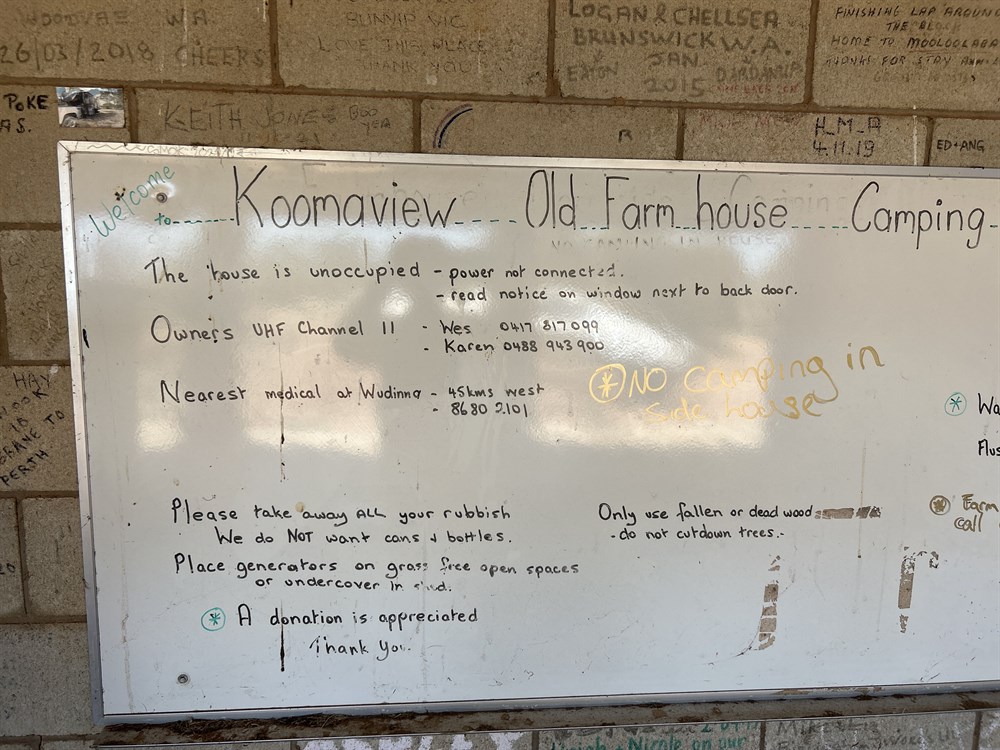 WOODVAE W.A.
26/03/2018 CHEERS
BUNYIP VIC
LOVE THIS PLACE
THANK YOU
LOGAN & CHELLSEA
BRUNSWICK W.A.
JAN
EATON 2015 DARDANUP
FINISHING LAP AROUND
THE BLOCK
HOME TO MOOLOOLABA
THANKS FOR STAY
POKE
AS.
KEITH JONES
R
H_M_A
4.11.19
ED+ANG
Welcome
to Koomaview Old Farm house Camping
The house is unoccupied - power not connected.
- read notice on window next to back door.
Owners UHF Channel 11 - Wes 0417 817 099
- Karen 0488 943 900
Nearest medical at Wudinna - 45kms west
- 8680 2101
* NO camping in
side house
* Wa
Flus
Please take away ALL your rubbish
We do NOT want cans & bottles.
Only use fallen or dead wood
- do not cutdown trees.
* Farm
call
Place generators on grass free open spaces
or undercover in shed.
* A donation is appreciated
Thank You.
HAY
TO
PERTH
Nicole on our